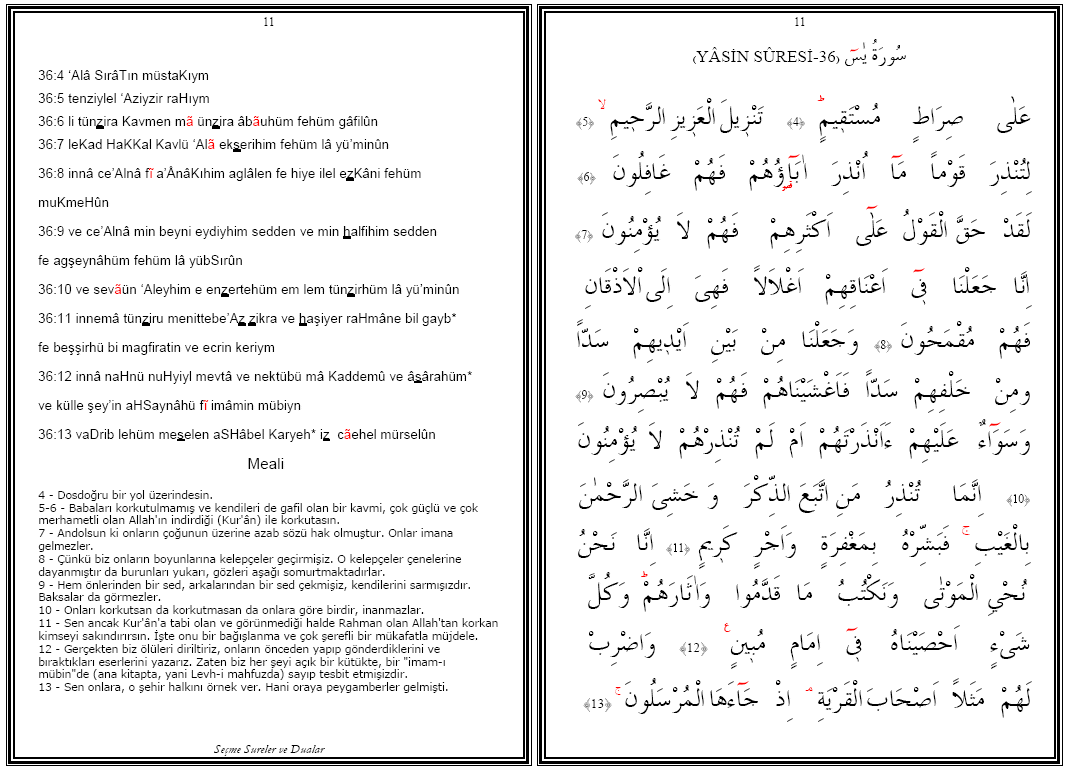 11
36:4 ‘Alâ SırâTın müstaKıym
36:5 tenziylel ‘Aziyzir raHıym
36:6 li tünzira Kavmen mã ünzira âbãuhüm fehüm gâfilûn
36:7 leKad HaKKal Kavlü ‘Alã ekserihim fehüm lâ yü’minûn
36:8 innâ ce’Alnâ fĩ a’ÂnâKıhim aglâlen fe hiye ilel ezKâni fehüm
muKmeHûn
36:9 ve ce’Alnâ min beyni eydiyhim sedden ve min halfihim sedden
fe agşeynâhüm fehüm lâ yübSırûn
36:10 ve sevãün ‘Aleyhim e enzertehüm em lem tünzirhüm lâ yü’minûn
36:11 innemâ tünziru menittebe’Az zikra ve haşiyer raHmâne bil gayb*
fe beşşirhü bi magfiratin ve ecrin keriym
36:12 innâ naHnü nuHyiyl mevtâ ve nektübü mâ Kaddemû ve âsârahüm*
ve külle şey’in aHSaynâhü fĩ imâmin mübiyn
36:13 vaDrib lehüm meselen aSHâbel Karyeh* iz cãehel mürselûn
Meali
4 - Dosdoğru bir yol üzerindesin.
5-6 - Babaları korkutulmamış ve kendileri de gafil olan bir kavmi, çok güçlü ve çok
merhametli olan Allah'ın indirdiği (Kur'ân) ile korkutasın.
7 - Andolsun ki onların çoğunun üzerine azab sözü hak olmuştur. Onlar imana
gelmezler.
8 - Çünkü biz onların boyunlarına kelepçeler geçirmişiz. O kelepçeler çenelerine
dayanmıştır da burunları yukarı, gözleri aşağı somurtmaktadırlar.
9 - Hem önlerinden bir sed, arkalarından bir sed çekmişiz, kendilerini sarmışızdır.
Baksalar da görmezler.
10 - Onları korkutsan da korkutmasan da onlara göre birdir, inanmazlar.
11 - Sen ancak Kur'ân'a tabi olan ve görünmediği halde Rahman olan Allah'tan korkan
kimseyi sakındırırsın. İşte onu bir bağışlanma ve çok şerefli bir mükafatla müjdele.
12 - Gerçekten biz ölüleri diriltiriz, onların önceden yapıp gönderdiklerini ve
bıraktıkları eserlerini yazarız. Zaten biz her şeyi açık bir kütükte, bir "imam-ı
mübin"de (ana kitapta, yani Levh-i mahfuzda) sayıp tesbit etmişizdir.
13 - Sen onlara, o şehir halkını örnek ver. Hani oraya peygamberler gelmişti.
Seçme Sureler ve Dualar
11
سُورَةُ يٰسٓ (YÂSİN SÛRESİ-36)
عَلٰى صِرَاطٍ مُسْتَقٖيمٍۜ ﴿4﴾ تَنْزٖيلَ الْعَزٖيزِ الرَّحٖيمِۙ ﴿5﴾
لِتُنْذِرَ قَوْماً مَٓا اُنْذِرَ اٰبَٓاؤُ۬هُمْ فَهُمْ غَافِلُونَ ﴿6﴾
لَقَدْ حَقَّ الْقَوْلُ عَلٰٓى اَكْثَرِهِمْ فَهُمْ لَا يُؤْمِنُونَ ﴿7﴾
اِنَّا جَعَلْنَا فٖٓى اَعْنَاقِهِمْ اَغْلَالاً فَهِىَ اِلَى الْاَذْقَانِ
فَهُمْ مُقْمَحُونَ ﴿8﴾ وَجَعَلْنَا مِنْ بَيْنِ اَيْدٖيهِمْ سَدًّا
ومِنْ خَلْفِهِمْ سَدًّا فَاَغْشَيْنَاهُمْ فَهُمْ لَا يُبْصِرُونَ ﴿9﴾
وَسَوَٓاءٌ عَلَيْهِمْ ءَاَنْذَرْتَهُمْ اَمْ لَمْ تُنْذِرْهُمْ لَا يُؤْمِنُونَ
﴿10﴾ اِنَّمَا تُنْذِرُ مَنِ اتَّبَعَ الذِّكْرَ وَ خَشِىَ الرَّحْمٰنَ
بِالْغَيْبِۚ فَبَشِّرْهُ بِمَغْفِرَةٍ وَاَجْرٍ كَرٖيمٍ ﴿11﴾ اِنَّا نَحْنُ
نُحْيِ الْمَوْتٰى وَنَكْتُبُ مَا قَدَّمُوا وَاٰثَارَهُمْۜ وَكُلَّ
شَىْءٍ اَحْصَيْنَاهُ فٖٓى اِمَامٍ مُبٖينٍۚ ﴿12﴾ وَاضْرِبْ
لَهُمْ مَثَلاً اَصْحَابَ الْقَرْيَةِۢ اِذْ جَٓاءَهَا الْمُرْسَلُونَۚ ﴿13﴾